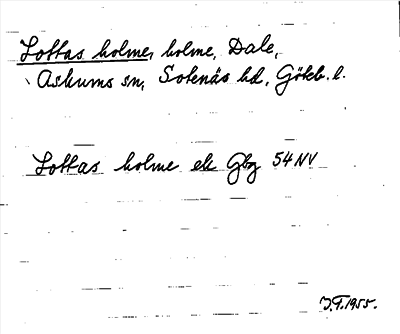 Lottas holme, holme, Dale,
Askums sn, Sotenäs hd, Göteb. l.
Lottas holme ek Gbg 54 NV
J.F. 1955.